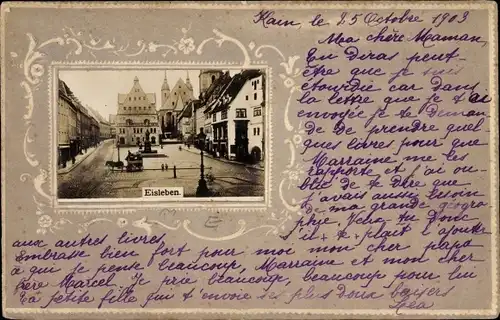 Ham, le 25 Octobre 1903
Ma chère Maman,
Tu diras peut-
être que je suis
étourdie car dans
la lettre que je t'ai
envoyée je te deman
de de prendre quel
ques livres pour que
Marraine me les
rapporte et j'ai ou-
blié de te dire que
j'avais aussi besoin
de ma grande géogra
phie. Veux-tu donc
s'il te plait l'ajouter
aux autres livres
Embrasse bien fort pour moi mon cher papa
à qui je pense beaucoup, Marraine et mon cher
père Marcel. Je prie beaucoup, beaucoup pour lui
Ta petite fille qui t'envoie ses plus doux baisers
Léa
Eisleben.